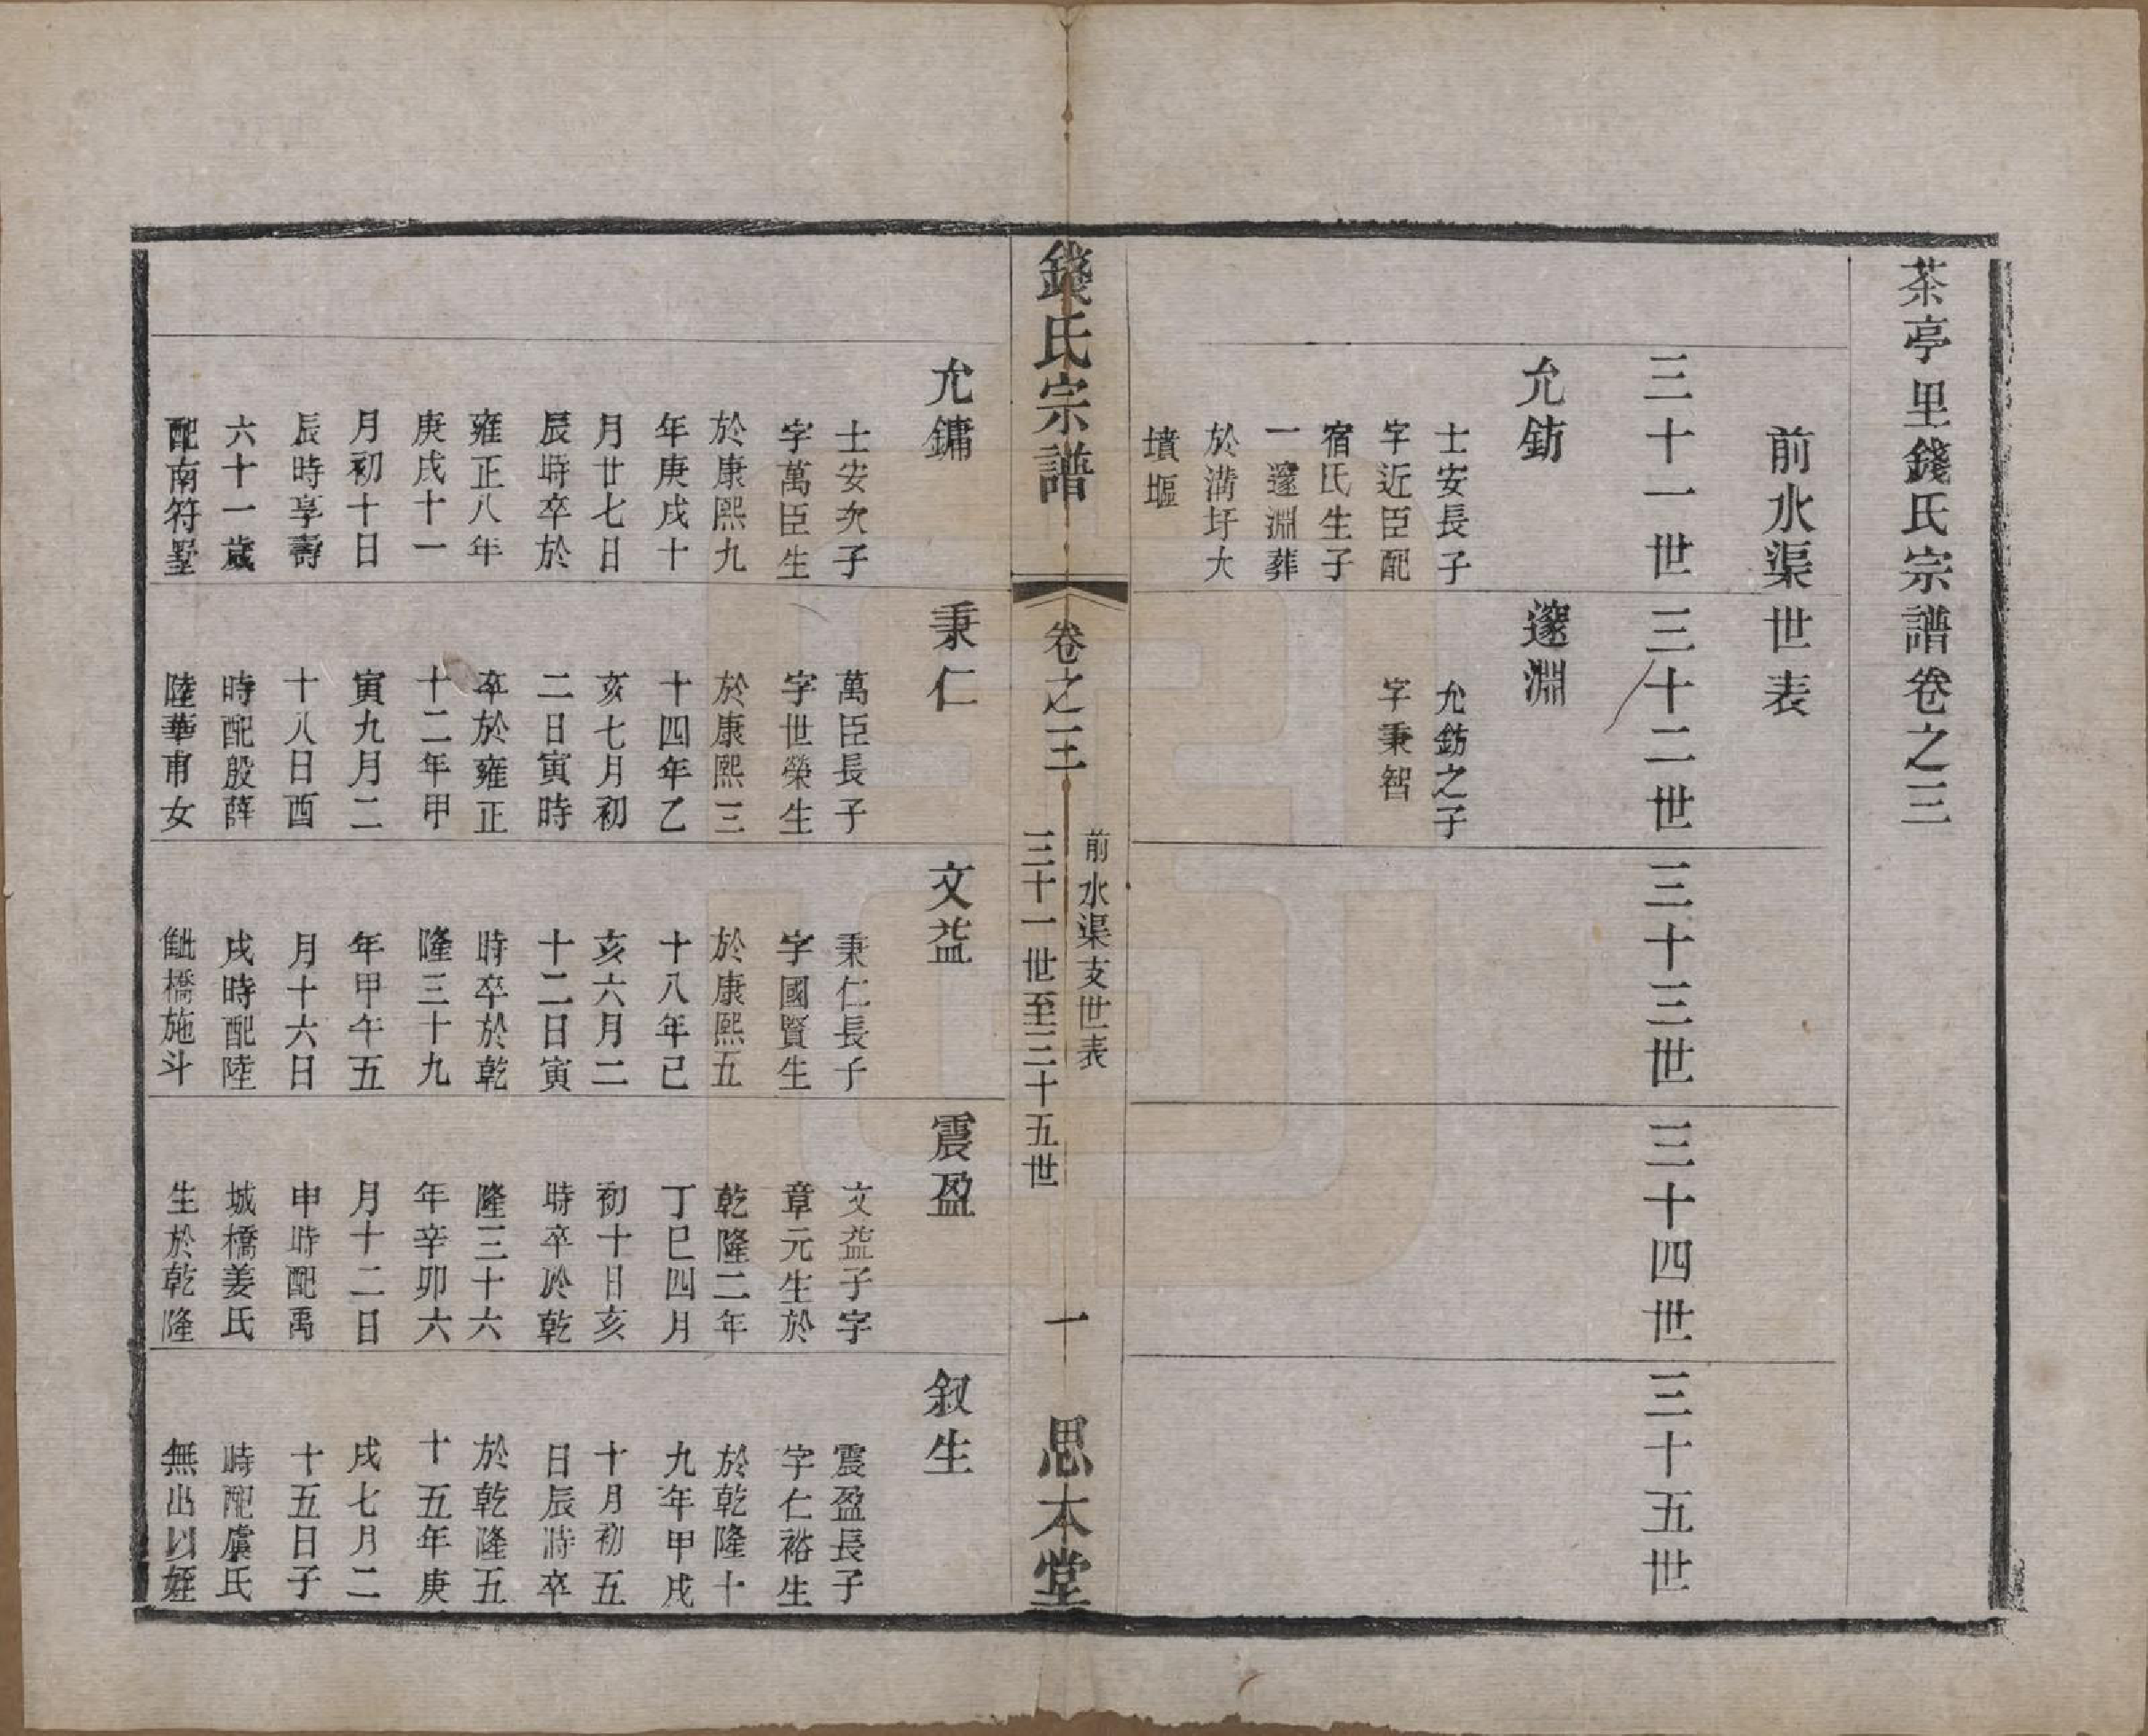 茶亭里錢氏宗譜卷之三
前水渠世表
三十一世
三十二世
三十三世
三十四世
三十五世
允鈁
士安長子
字近臣配
宿氏生子
一邃淵葬
於溝圩大
墳堰
邃淵
允鈁之子
字秉智
錢氏宗譜
卷之三
前水渠支世表
三十一世至三十五世
一
思本堂
允鏞
士安次子
字萬臣生
於康熙九
年庚戌十
月廿七日
辰時卒於
雍正八年
庚戌十一
月初十日
辰時享壽
六十一歲
配南符墅
秉仁
萬臣長子
字世榮生
於康熙三
十四年乙
亥七月初
二日寅時
卒於雍正
十二年甲
寅九月二
十八日酉
時配殷薛
陸華甫女
文益
秉仁長子
字國賢生
於康熙五
十八年己
亥六月二
十二日寅
時卒於乾
隆三十九
年甲午五
月十六日
戌時配陸
橋施斗
震盈
文益子字
章元生於
乾隆二年
丁巳四月
初十日亥
時卒於乾
隆三十六
年辛卯六
月十二日
申時配禹
城橋姜氏
生於乾隆
叙生
震盈長子
字仁裕生
於乾隆十
九年甲戌
十月初五
日辰時卒
於乾隆五
十五年庚
戌七月二
十五日子
時配虞氏
無出以姪